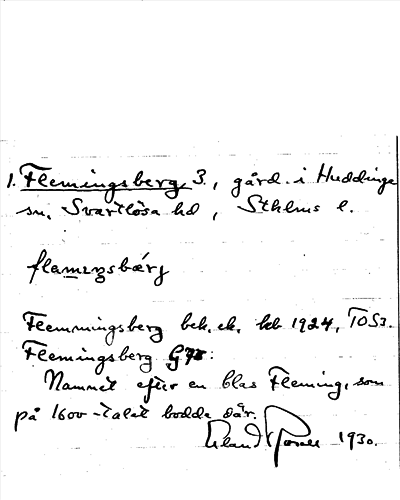 1. Flemingsberg 3., gård i Huddinge
sn, Svartlösa hd, Sthlms l.
flamiŋsbærj
Flemmingsberg bek. ek. kb 1924, TOS3.
Flemingsberg G78:
Namnet efter en Clas Fleming, som
på 1600-talet bodde där.
Erland Rosell 1930.